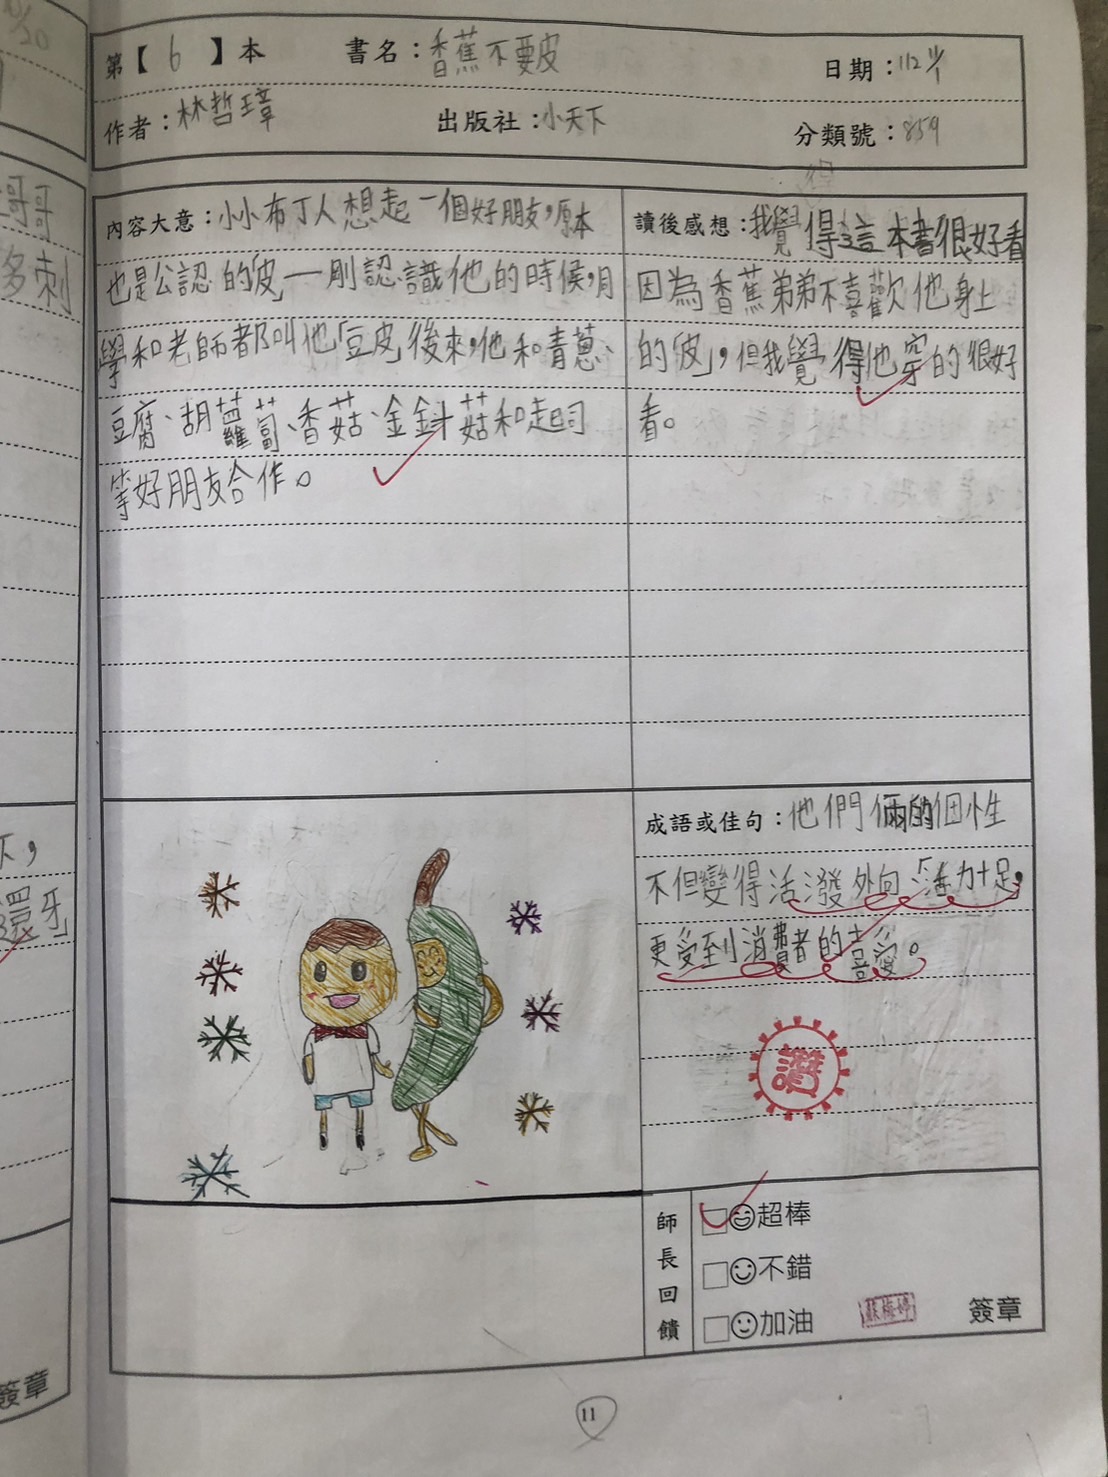 第【 6 】本 書名：香蕉不要皮 日期：112 11/1
作者：林哲璋 出版社：小天下 分類號：859
內容大意：小小布丁人想起一個好朋友，原本
也是公認的「皮」——剛認識他的時候，同
學和老師都叫他「豆皮」後來，他和青蔥、
豆腐、胡蘿蔔、香菇、金針菇和起司
等好朋友合作。
讀後感想：我覺得這本書很好看
因為香蕉弟弟不喜歡他身上
的「皮」，但我覺得他穿的很好
看。
成語或佳句：他們倆的個性
不但變得活潑外向、活力十足，
更受到消費者的喜愛。
讚
師長回饋
超棒
不錯
加油
簽章
11
10/20
哥哥
多刺
下，
還牙
簽章